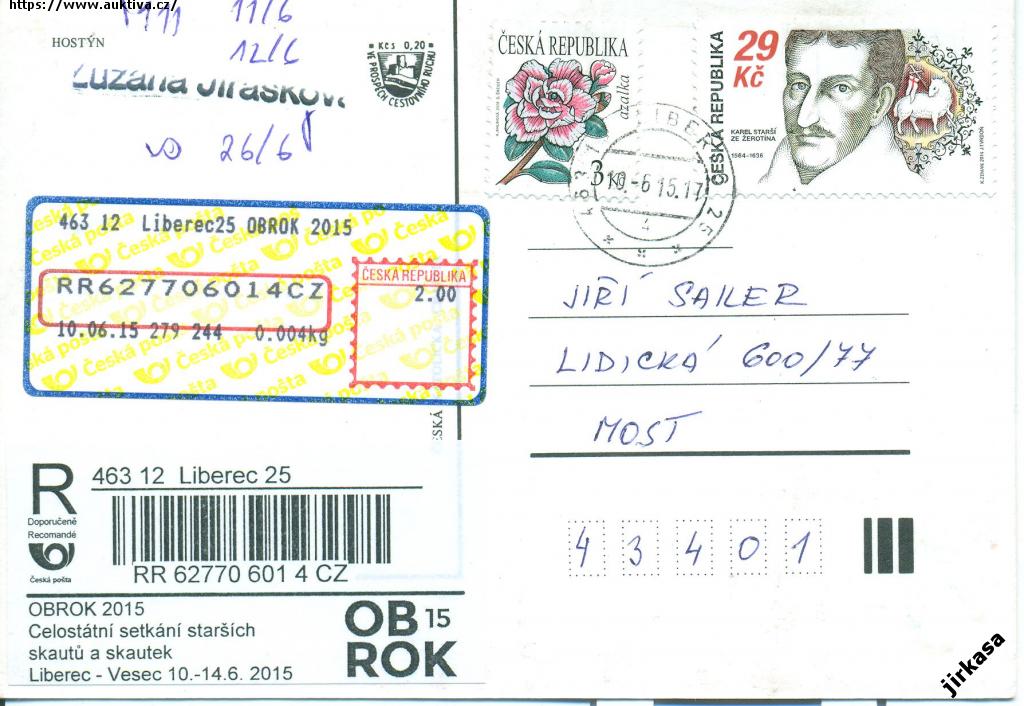 https://www.auktiva.cz/
11/6
12/6
HOSTÝN
Kčs 0,20
VE PROSPĚCH CESTOVNÍHO RUCHU
Zuzana Jirásková
26/6
ČESKÁ REPUBLIKA
azalka
3 Kč
ČESKÁ REPUBLIKA
29
Kč
KAREL STARŠÍ
ZE ŽEROTÍNA
1564–1636
LIBEREC 25
463 11
10.-6.15.17
4
Česká pošta
463 12 Liberec25 OBROK 2015
RR627706014CZ
10.06.15 279 244 0.004kg
ČESKÁ REPUBLIKA
2.00
JIŘÍ SAILER
LIDICKÁ 600/77
MOST
43401
R
Doporučeně
Recomandé
Česká pošta
463 12 Liberec 25
RR 62770 601 4 CZ
OBROK 2015
Celostátní setkání starších
skautů a skautek
Liberec - Vesec 10.-14.6. 2015
OB 15
ROK
jirkasa